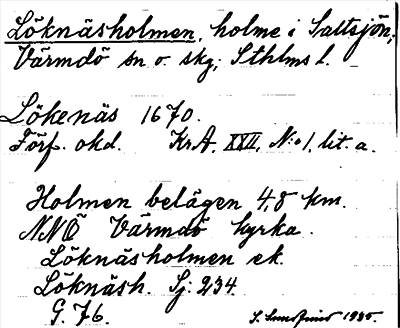 Löknäsholmen, holme i Saltsjön,
Värmdö sn o. skg; Sthlms l.
Lökenäs 1670.
Förf. okd. KrA, XVII, N:o 1, lit. a.
Holmen belägen 4,8 km.
NNÖ Värmdö kyrka.
Löknäsholmen ek.
Löknäsh. Sj: 234.
G. 76.
1935.